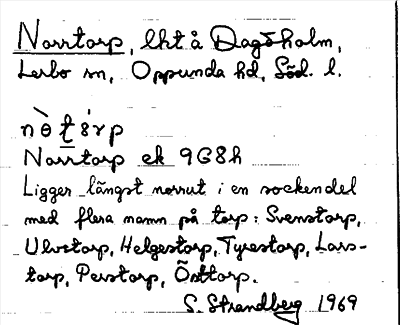 Norrtorp, lht å Dagsholm,
Lerbo sn, Oppunda hd, Söd. l.
Norrtorp ek 9G8h
Ligger längst norrut i en sockendel
med flera namn på torp: Svenstorp,
Ulvstorp, Helgestorp, Tyrestorp, Lars-
torp, Perstorp, Östtorp.
S. Strandberg 1969